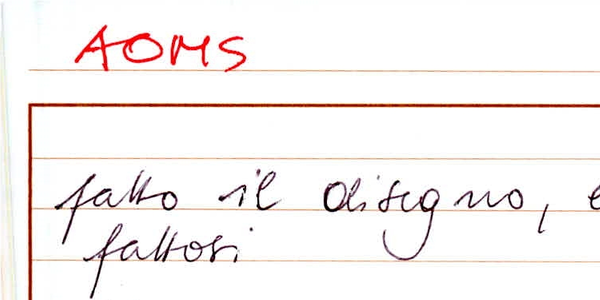 AOMS
fatto il disegno, e
fattori